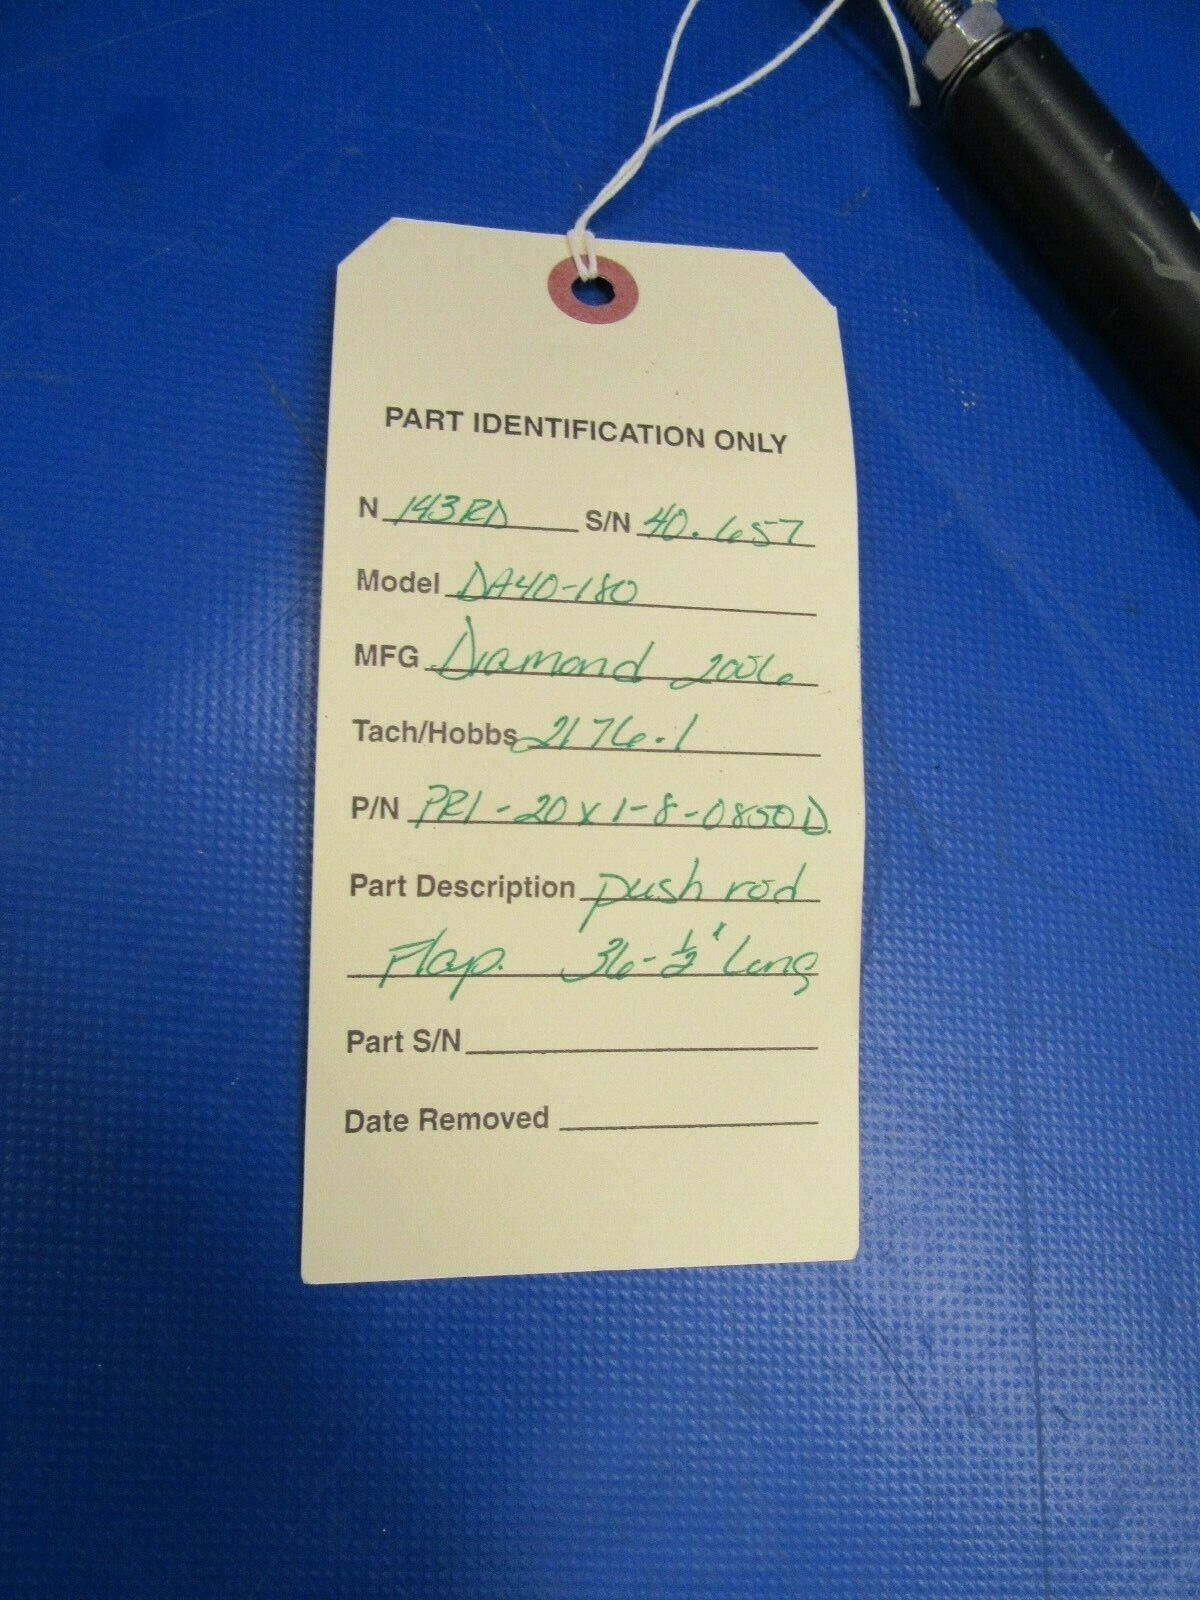 PART IDENTIFICATION ONLY
N 143RD S/N 40.657
Model DA40-180
MFG Diamond 2006
Tach/Hobbs 2176.1
P/N PR1-20x1-8-0850D.
Part Description push rod
Flap. 36-½" Long
Part S/N
Date Removed